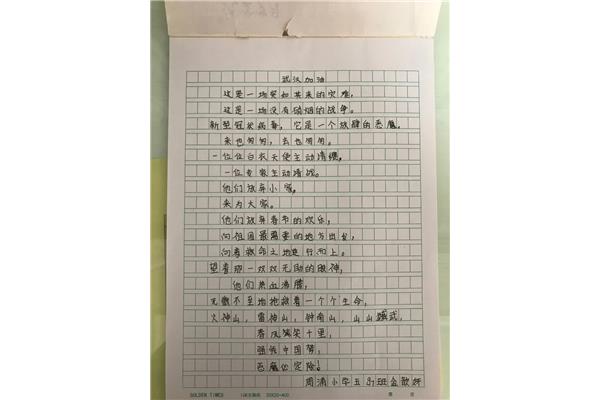 武汉加油
这是一场突如其来的灾难,
这是一场没有硝烟的战争。
新型冠状病毒,它是一个放肆的恶魔。
来也匆匆,去也匆匆。
一位位白衣天使主动请缨,
一位专家主动请战。
他们放弃小家,
来为大家。
他们放弃春节的欢乐,
向祖国最需要的地方出发,
向着救命之地逆行而上。
望着那一双双无助的眼神,
他们热血沸腾,
无微不至地抢救着一个个生命,
火神山,雷神山,钟南山,山山镇武,
春风笑笑十里,
强我中国梦,
恶魔必定除!
周浦小学五(3)班金
GOLDEN TIMES